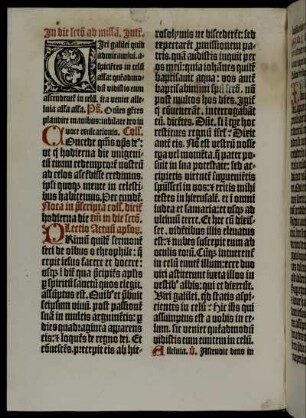 In die scētū ad missā. Intꝛ.
Viri galilei quid
admiramini. a-
spiciētes in celū
assa: quēadmo
dū vidistis eum
ascendentē in celū. ita veniet alle-
luia assa assa. Ps. Omēs gētes
plaudite manibus: iubilate deo in
voce exultationis. Collā.
Concede quesumꝰ
vt q hodierna die vnigeni-
tū
ad celos ascēdisse credimus.
ipsi quoqꝫ mente in celesti-
bus habitemus. Per eundē
Nota in
hodierna die
Lectio Actuū aplōꝝ.
Primū quidē sermonē
feci de oībus o theophile: q̄
cepit iesus facere et docere
vsqꝫ ī diē qua p̄cipiēs aplis
p spiritū sanctū quos elegit.
assūptus est. Quibꝰ et p̄buit
seipsum viuū. post passionē
suā in multis argumētis: p
dies quadraginta apparens
eis: ⁊ loquēs de regno dei. Et
cōuescēs. precepit eis ab hie-
rosolymis ne discederēt: sed
expectarēt promissionem patris
tris. quā audistis inquit per
os meū: quia iohānes quidē
baptisauit aqua: vos autē
baptisabimini spū scō. nō
post multos hos dies. Igit̄
q̄ cōuenerāt. interrogabāt
eū. dicētes. Dn̄e. si ī tpe hoc
restitues regnū isrl. Dixit
autē eis. Nō est vestrū nosse
tpa vel momēta. q̄ pater po-
suit in sua potestate: sed ac-
cipietis virtutē superueniētis
spūssctī in vos: ⁊ eritis mihi
testes in hierusalē. et ī omni
iudea et samaria. ⁊ vsqꝫ ad
vltimū terre. Et cū hec dixis-
set. vidētibus illis eleuatus
est: ⁊ nubes suscepit eum ab
oculis eoꝝ. Cūqꝫ intuerent̄
in celū eūtē illum: ecce duo
viri astiterunt iuxta illos in
vestibꝰ albis: qui et dixerūt.
Viri galilei. qd statis aspi-
cientes in celū: Hic iesꝰ qui
assumptus est a vobis in ce-
lum. sic veniet quēadmodū
vidistis eum euntem in celū.
Alleluia. v. Ascendit deus in